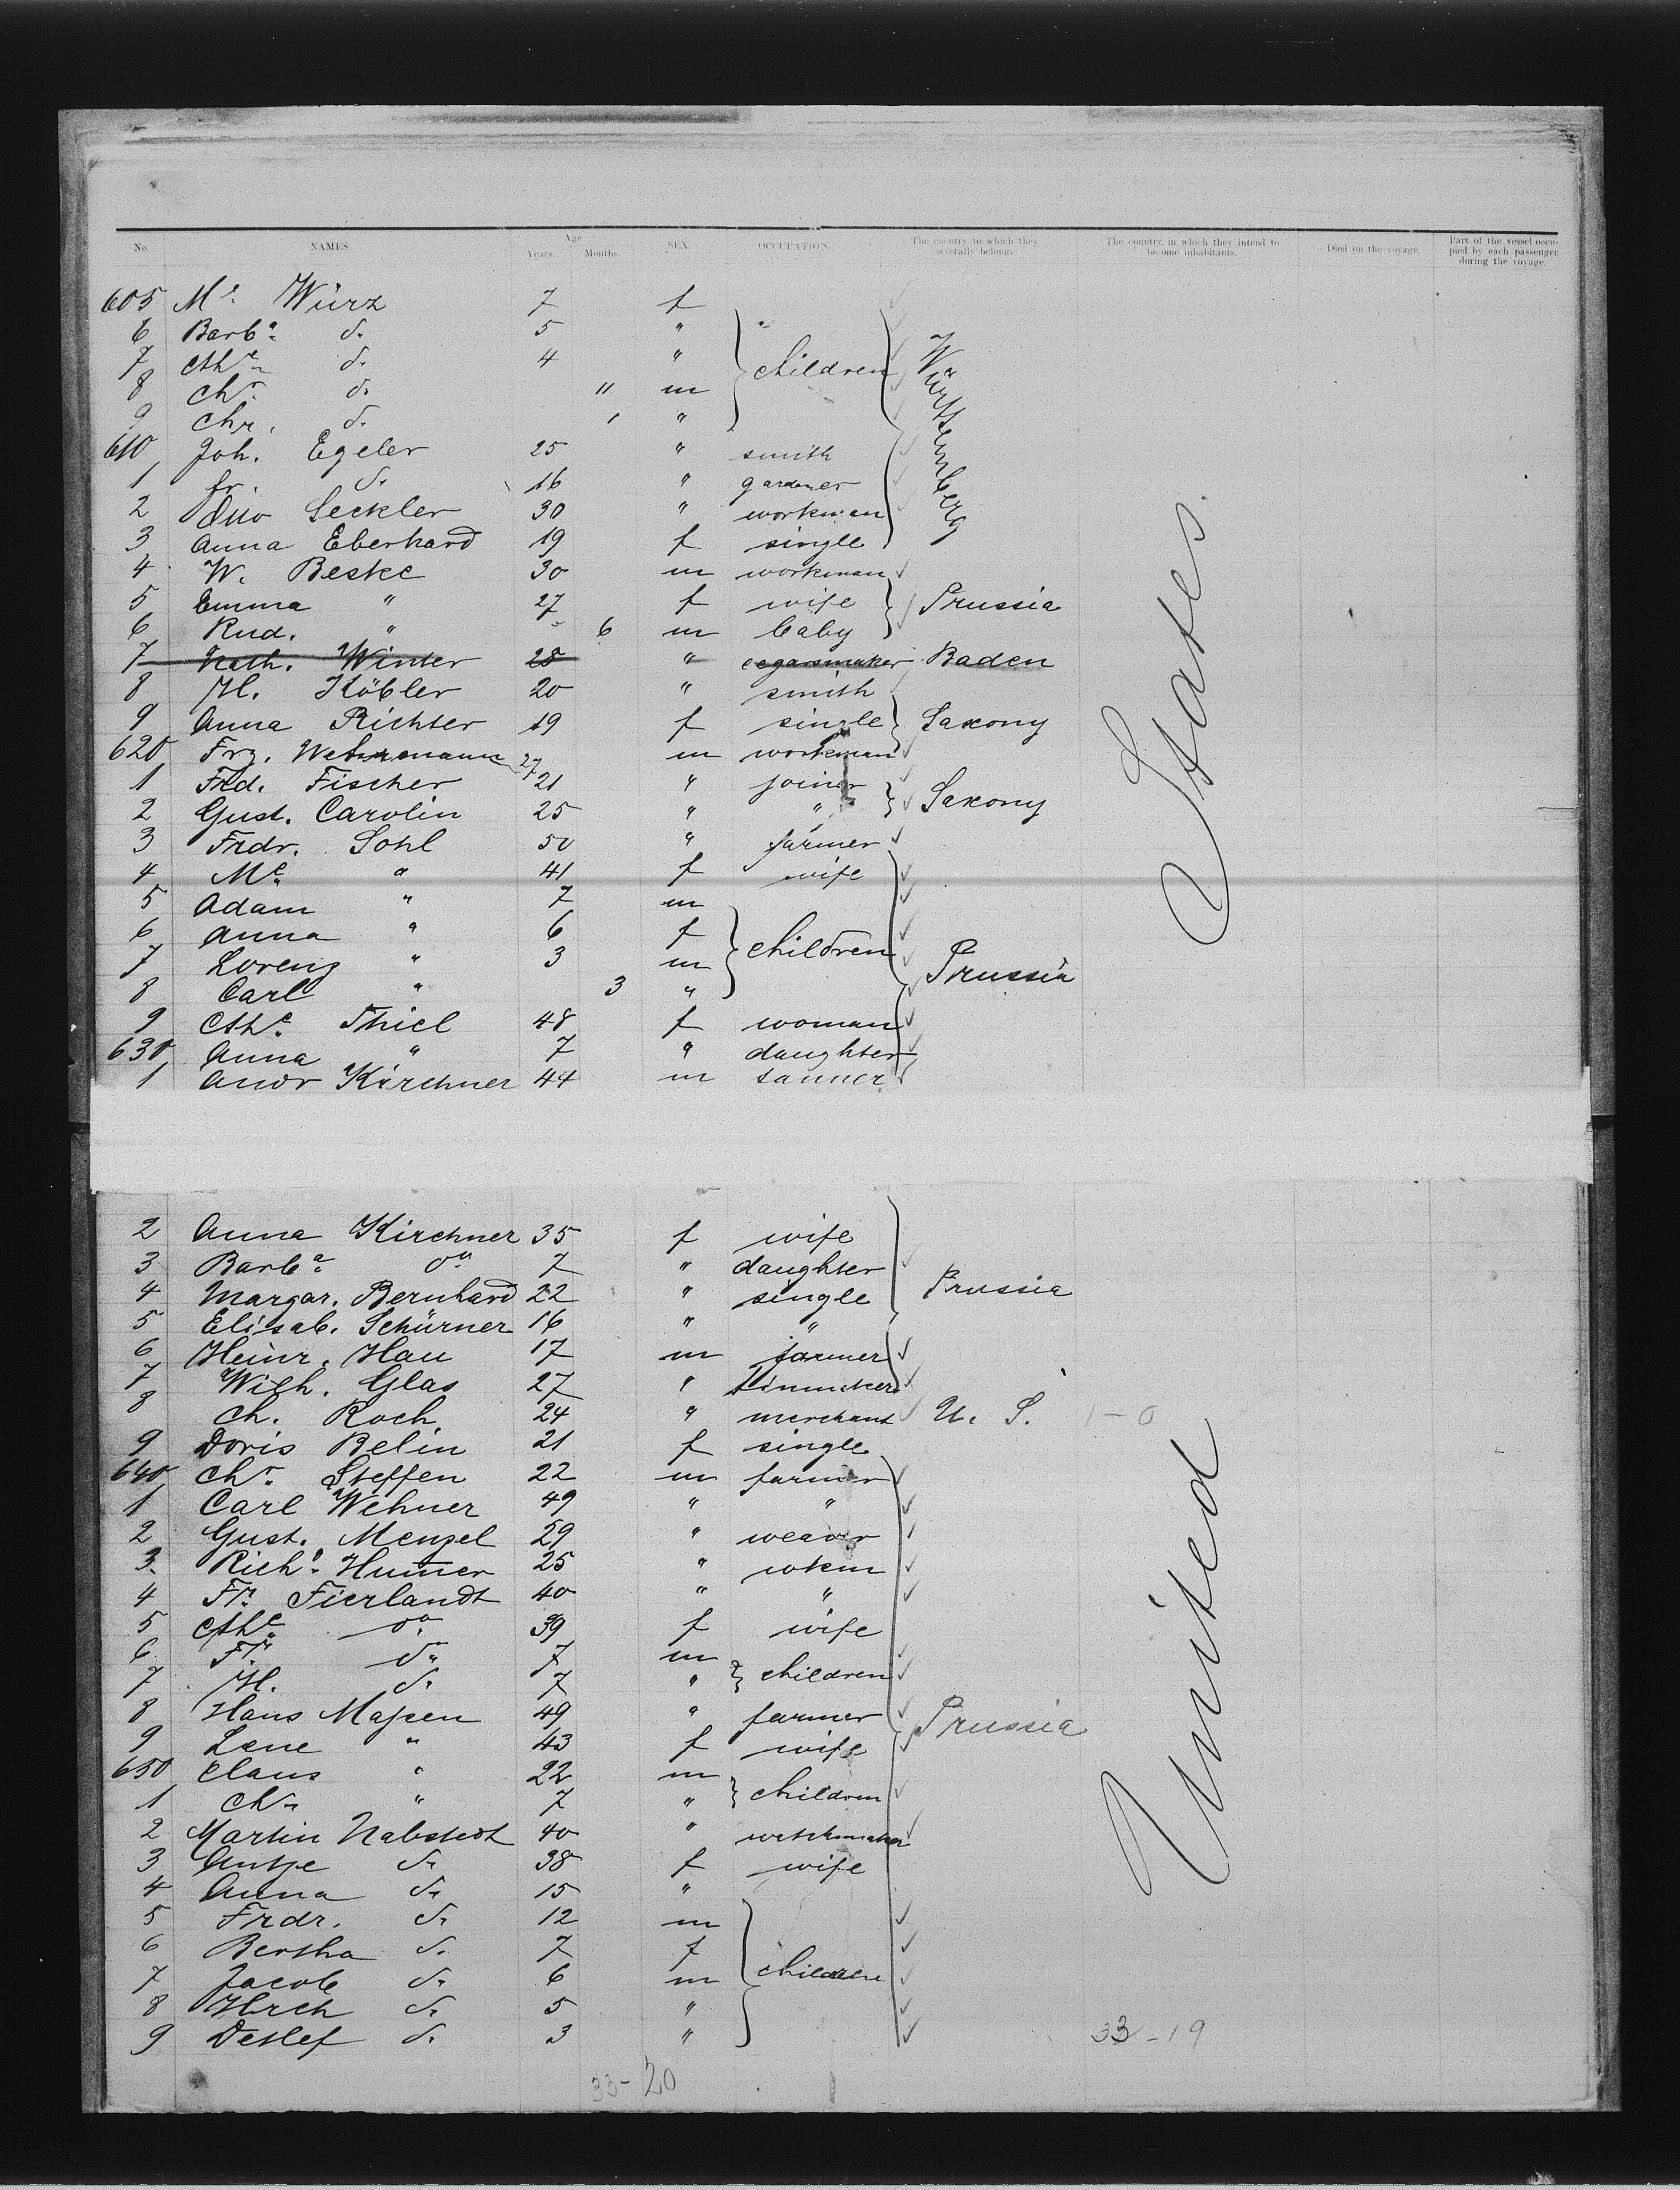 No. NAMES Age Years. Months. SEX. OCCUPATION. The country to which they severally belong. The country, in which they intend to become inhabitants. Died on the voyage. Part of the vessel occupied by each passenger during the voyage.
605 Me. Würz 7 f
6 Barba. d. 5 "
7 Cthe. d. 4 " children Württemberg
8 Chr. d. 11 m
9 Chr. d. 1 "
610 Joh. Egeler 25 " smith
1 fr. d. 16 " gardener
2 Otto Seckler 30 " workman
3 Anna Eberhard 19 f single
4 W. Beske 30 m workman
5 Emma " 27 f wife Prussia
6 Rud. " 6 m baby
7 Nath. Winter 28 " cegarsmaker Baden
8 H. Köbler 20 " smith
9 Anna Richter 19 f single Saxony
620 Frz. Wehrmann 27 m workman
1 Frd. Fischer 21 " joiner
2 Gust. Carolin 25 " " Saxony
3 Frdr. Sohl 50 " farmer
4 Me. " 41 f wife
5 Adam " 7 m
6 Anna " 6 f children
7 Lorenz " 3 m Prussia
8 Carl " 3 "
9 Cthe. Thiel 48 f woman
630 Anna " 7 " daughter
1 Andr Kirchner 44 m tanner
States
2 Anna Kirchner 35 f wife
3 Barba. do. 7 " daughter
4 Margar. Bernhard 22 " single Prussia
5 Elisab. Schürner 16 " "
6 Heinr. Hau 17 m farmer
7 Wilh. Glas 27 "
8 Ch. Koch 24 " merchant U. S. 1-0
9 Doris Belin 21 f single
640 Chr. Steffen 22 m farmer
1 Carl Wehner 49 " "
2 Gust. Menzel 29 " weaver
3 Richd. Hummer 25 " wkm
4 Fr. Fierlandt 40 " "
5 Cthe. do. 39 f wife
6 Fr. d. 7 m children
7 H. d. 7 "
8 Hans Massen 49 " farmer Prussia
9 Lene " 43 f wife
650 Claus " 22 m children
1 Chr. " 7 "
2 Martin Nabstedt 40 " watchmaker
3 Antje d. 38 f wife
4 Anna d. 15 "
5 Frdr. d. 12 m
6 Bertha d. 7 f children
7 Jacob d. 6 m
8 Hrch d. 5 "
9 Detlef d. 3 "
United
33-19
33-20